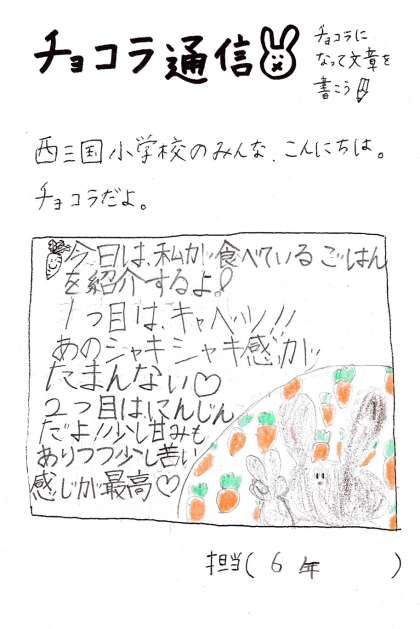 チョコラ通信
チョコラに
なって文章を
書こう
西三国小学校のみんな、こんにちは。
チョコラだよ。
今日は、私が食べているごはん
を紹介するよ!
1つ目は、キャベツ!!
あのシャキシャキ感が
たまんない♡
2つ目は、にんじん
だよ!!少し甘みも
ありつつ少し苦い
感じが最高♡
担当(6年)